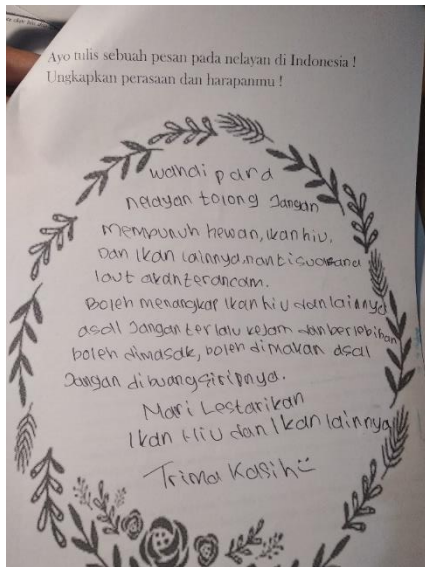 Ayo tulis sebuah pesan pada nelayan di Indonesia !
Ungkapkan perasaan dan harapanmu !
wahai para
nelayan tolong Jangan
mempunuh hewan, ikan hiu.
Dan Ikan lainnya, nanti suasana
laut akan terancam.
Boleh menangkap Ikan hiu dan lainnya
asall Jangan terlalu kejam dan berlebihan
boleh dimasak, boleh dimakan asall
Jangan dibuang siripnya.
Mari Lestarikan
Ikan Hiu dan Ikan lainnya
Trima Kasih